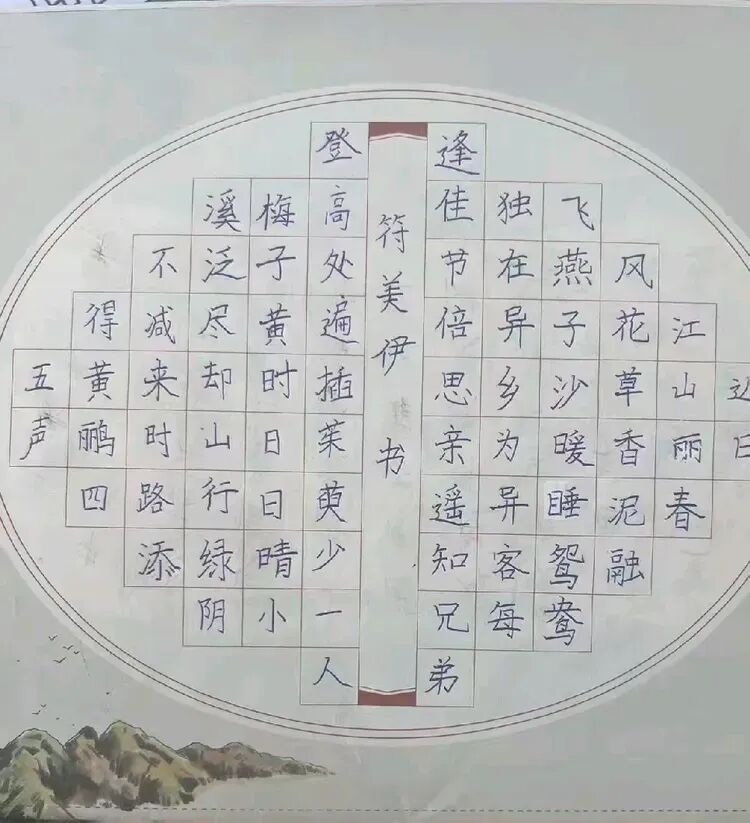 日
江山丽春
风花草香泥融
飞燕子沙暖睡鸳鸯
独在异乡为异客每
逢佳节倍思亲遥知兄弟
符美伊书
登高处遍插茱萸少一人
梅子黄时日日晴小
溪泛尽却山行绿阴
不减来时路添
得黄鹂四
五声